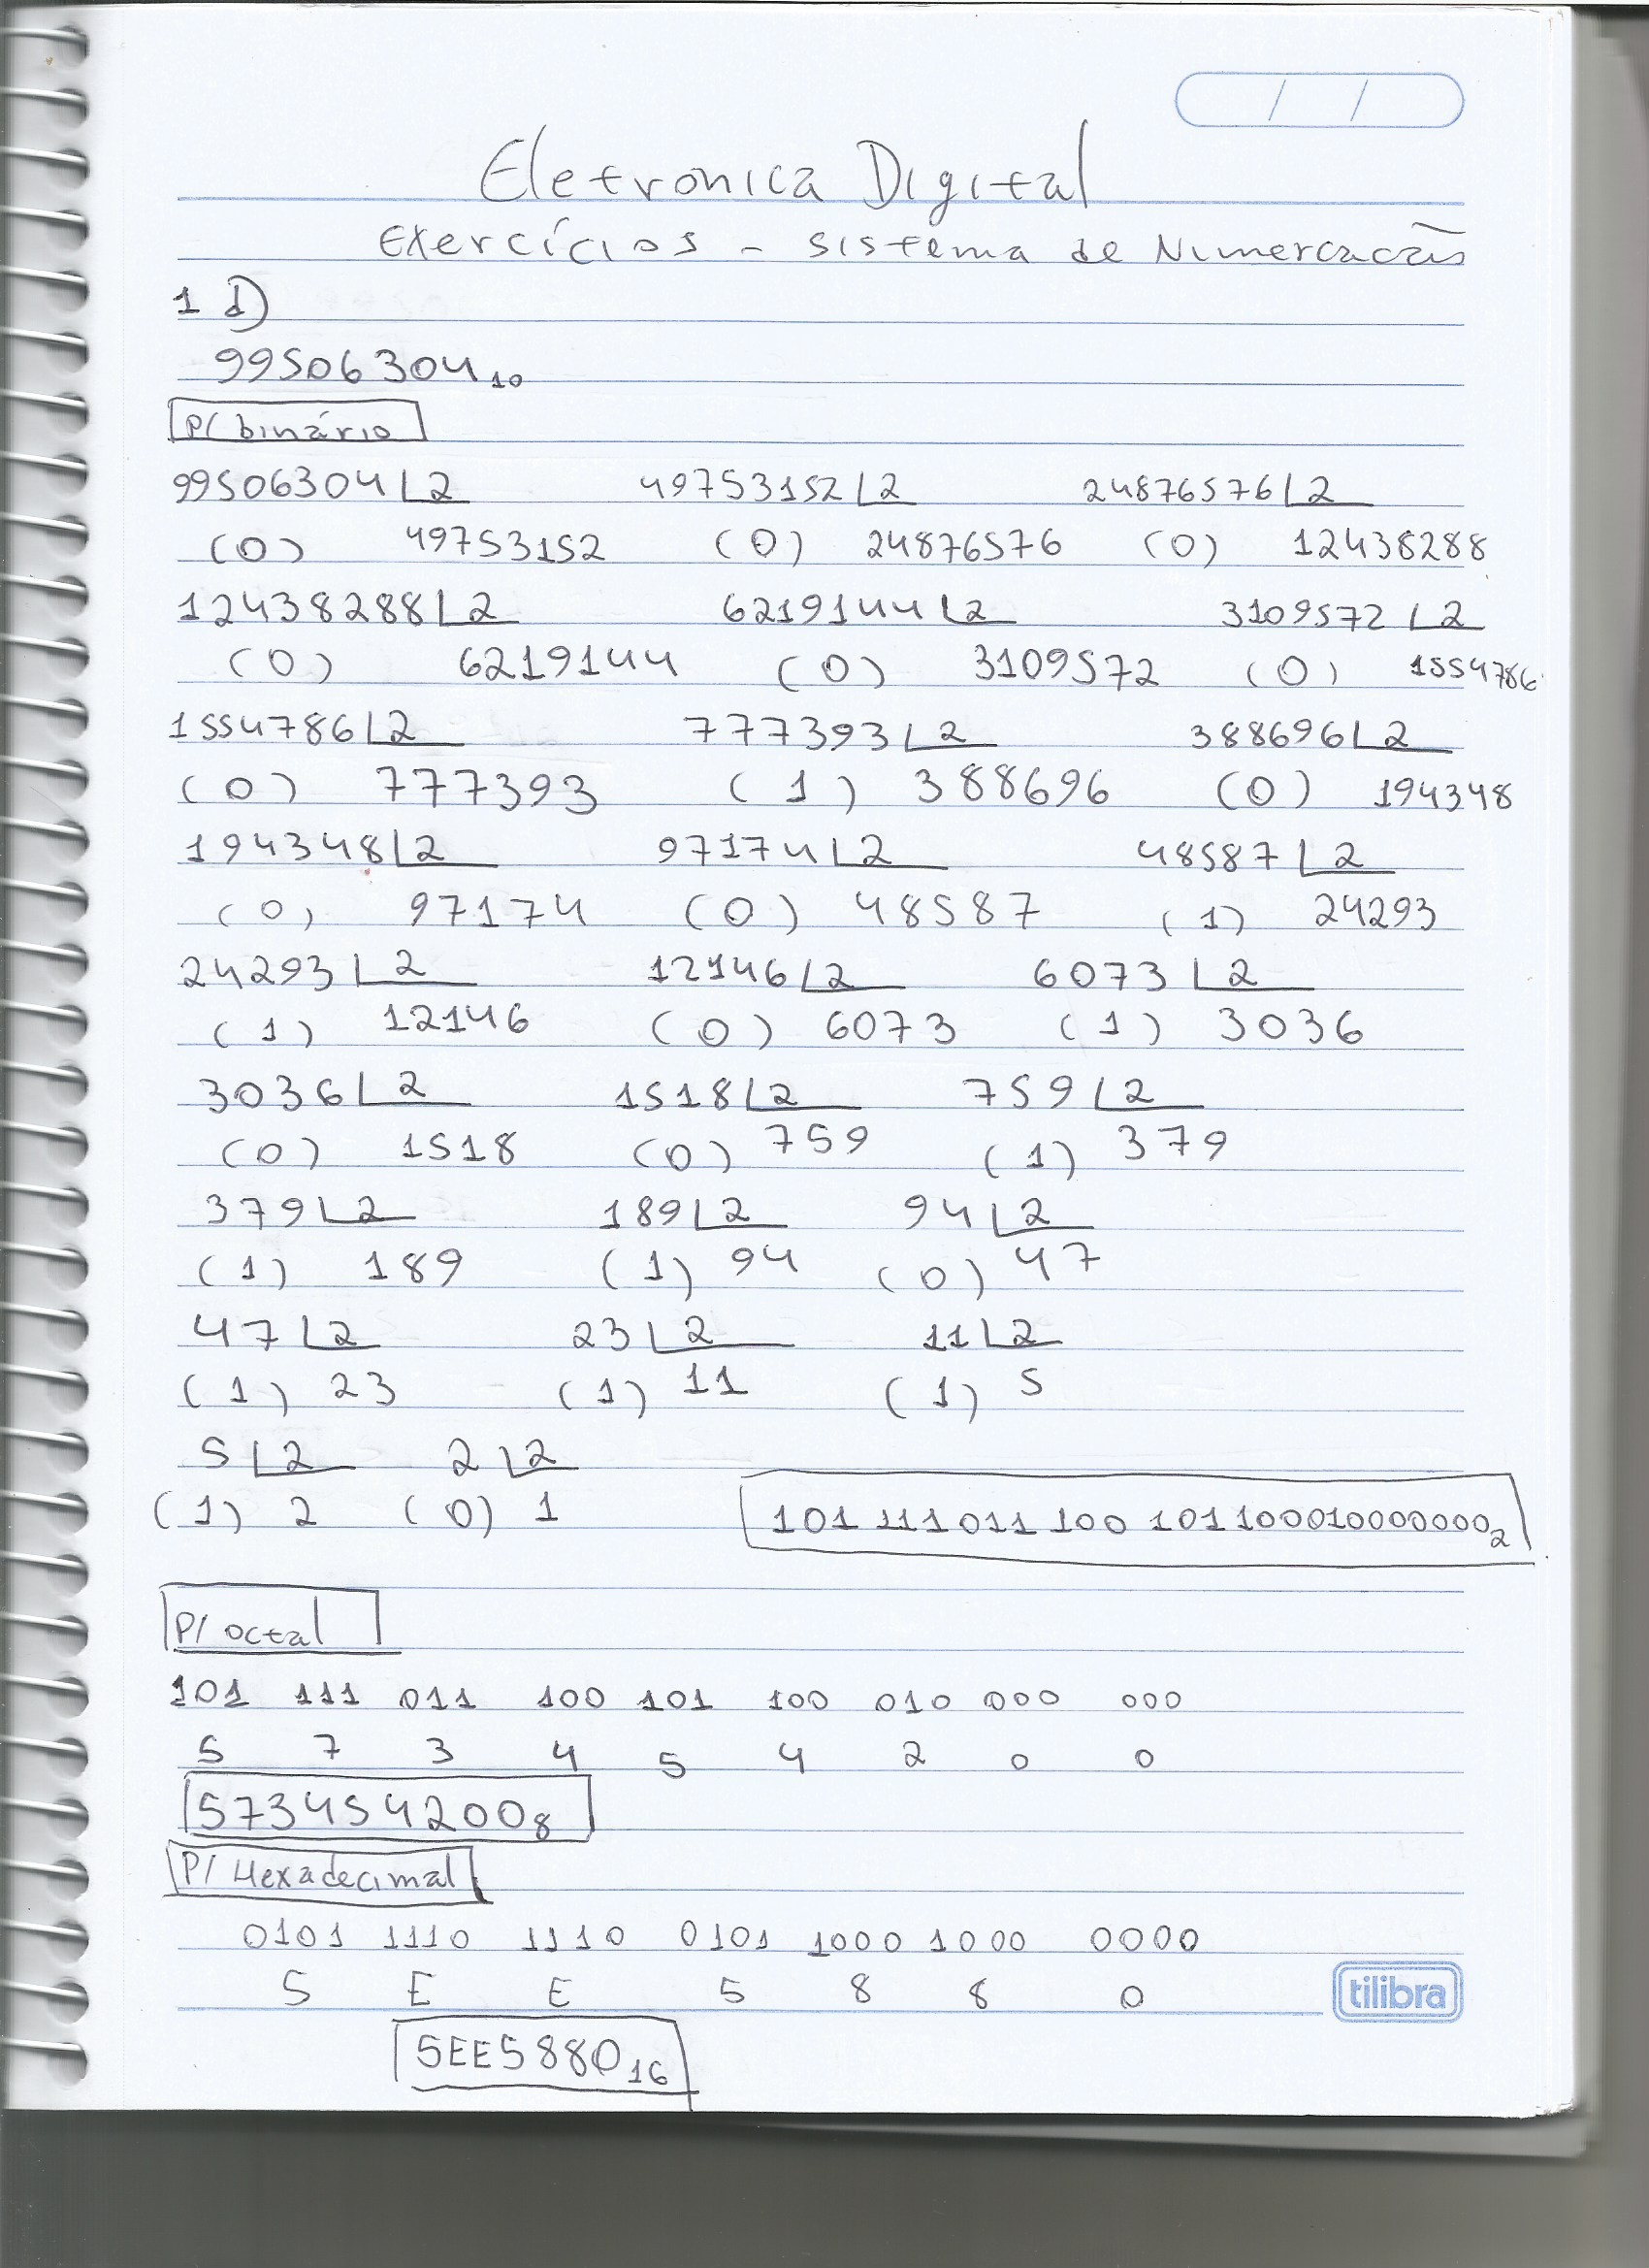 / /
Eletronica Digital
Exercícios - Sistema de
1 D)
99506304₁₀
P/ binário
99506304 2 49753152 2 24876576 2
(0) 49753152 (0) 24876576 (0) 12438288
12438288 2 6219144 2 3109572 2
(0) 6219144 (0) 3109572 (0) 1554786
1554786 2 777393 2 388696 2
(0) 777393 (1) 388696 (0) 194348
194348 2 97174 2 48587 2
(0) 97174 (0) 48587 (1) 24293
24293 2 12146 2 6073 2
(1) 12146 (0) 6073 (1) 3036
3036 2 1518 2 759 2
(0) 1518 (0) 759 (1) 379
379 2 189 2 94 2
(1) 189 (1) 94 (0) 47
47 2 23 2 11 2
(1) 23 (1) 11 (1) 5
5 2 2 2
(1) 2 (0) 1 101 111 011 100 101 100010000000₂
P/ octal
101 111 011 100 101 100 010 000 000
5 7 3 4 5 4 2 0 0
573454200₈
P/ Hexadecimal
0101 1110 1110 0101 1000 1000 0000
5 E E 5 8 8 0
tilibra
5EE5880₁₆